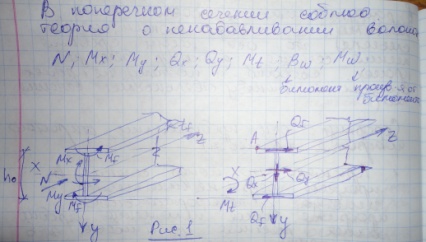 В поперечном сечении соблюд
теория о ненадавливании волокон
N; Mx; My; Qx; Qy; Mt; Bω; Mω;
бимомент
бимомента
Mx Mf z
Qf A z
h₀ X N
X Qx Qy
My Mf
Mt Qf
y Рис. 1 y